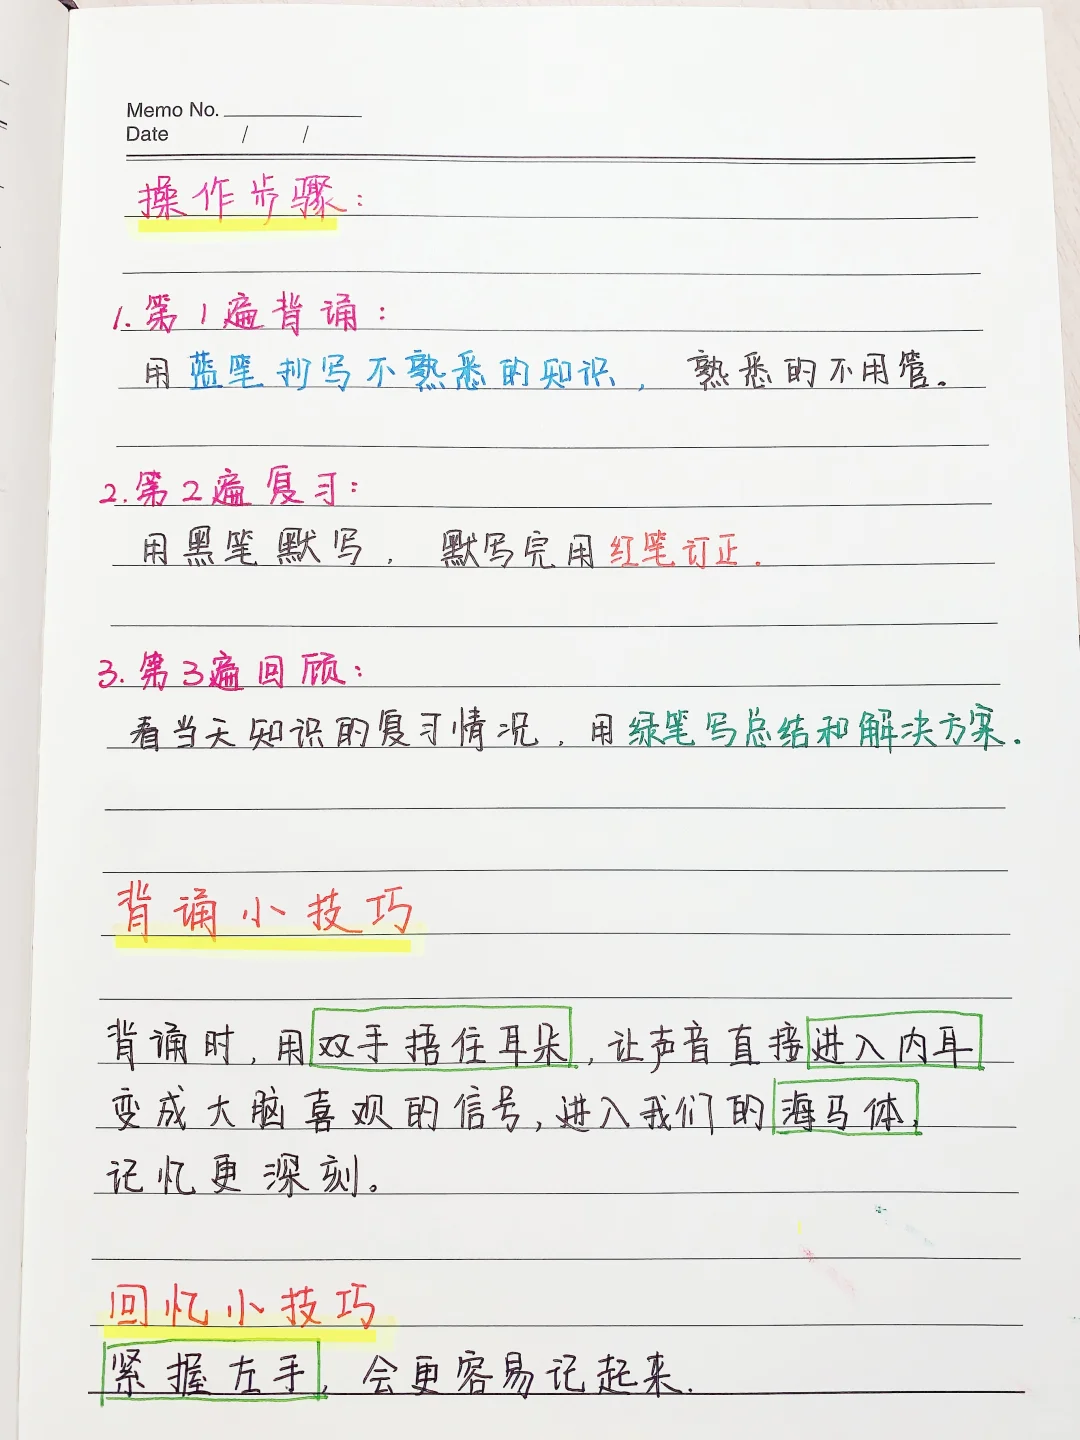 Memo No.
Date / /
操作步骤:
1.第1遍背诵:
用蓝笔抄写不熟悉的知识, 熟悉的不用管。
2.第2遍复习:
用黑笔默写, 默写完用红笔订正.
3.第3遍回顾:
看当天知识的复习情况,用绿笔写总结和解决方案.
背诵小技巧
背诵时,用双手捂住耳朵,让声音直接进入内耳
变成大脑喜欢的信号,进入我们的海马体,
记忆更深刻。
回忆小技巧
紧握左手,会更容易记起来.